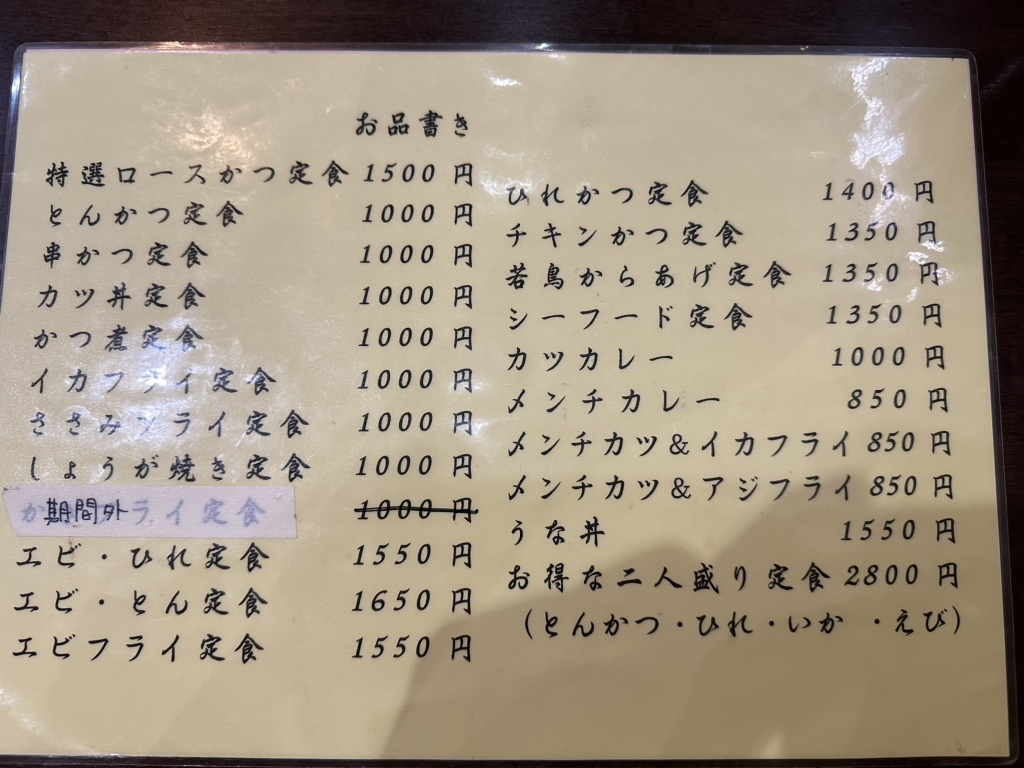 お品書き
特選ロースかつ定食 1500 円
とんかつ定食 1000 円
串かつ定食 1000 円
カツ丼定食 1000 円
かつ煮定食 1000 円
イカフライ定食 1000 円
ささみフライ定食 1000 円
しょうが焼き定食 1000 円
期間外 ライ定食 1000 円
エビ・ひれ定食 1550 円
エビ・とん定食 1650 円
エビフライ定食 1550 円
ひれかつ定食 1400 円
チキンかつ定食 1350 円
若鳥からあげ定食 1350 円
シーフード定食 1350 円
カツカレー 1000 円
メンチカレー 850 円
メンチカツ&イカフライ 850 円
メンチカツ&アジフライ 850 円
うな丼 1550 円
お得な二人盛り定食 2800 円
(とんかつ・ひれ・いか ・えび)